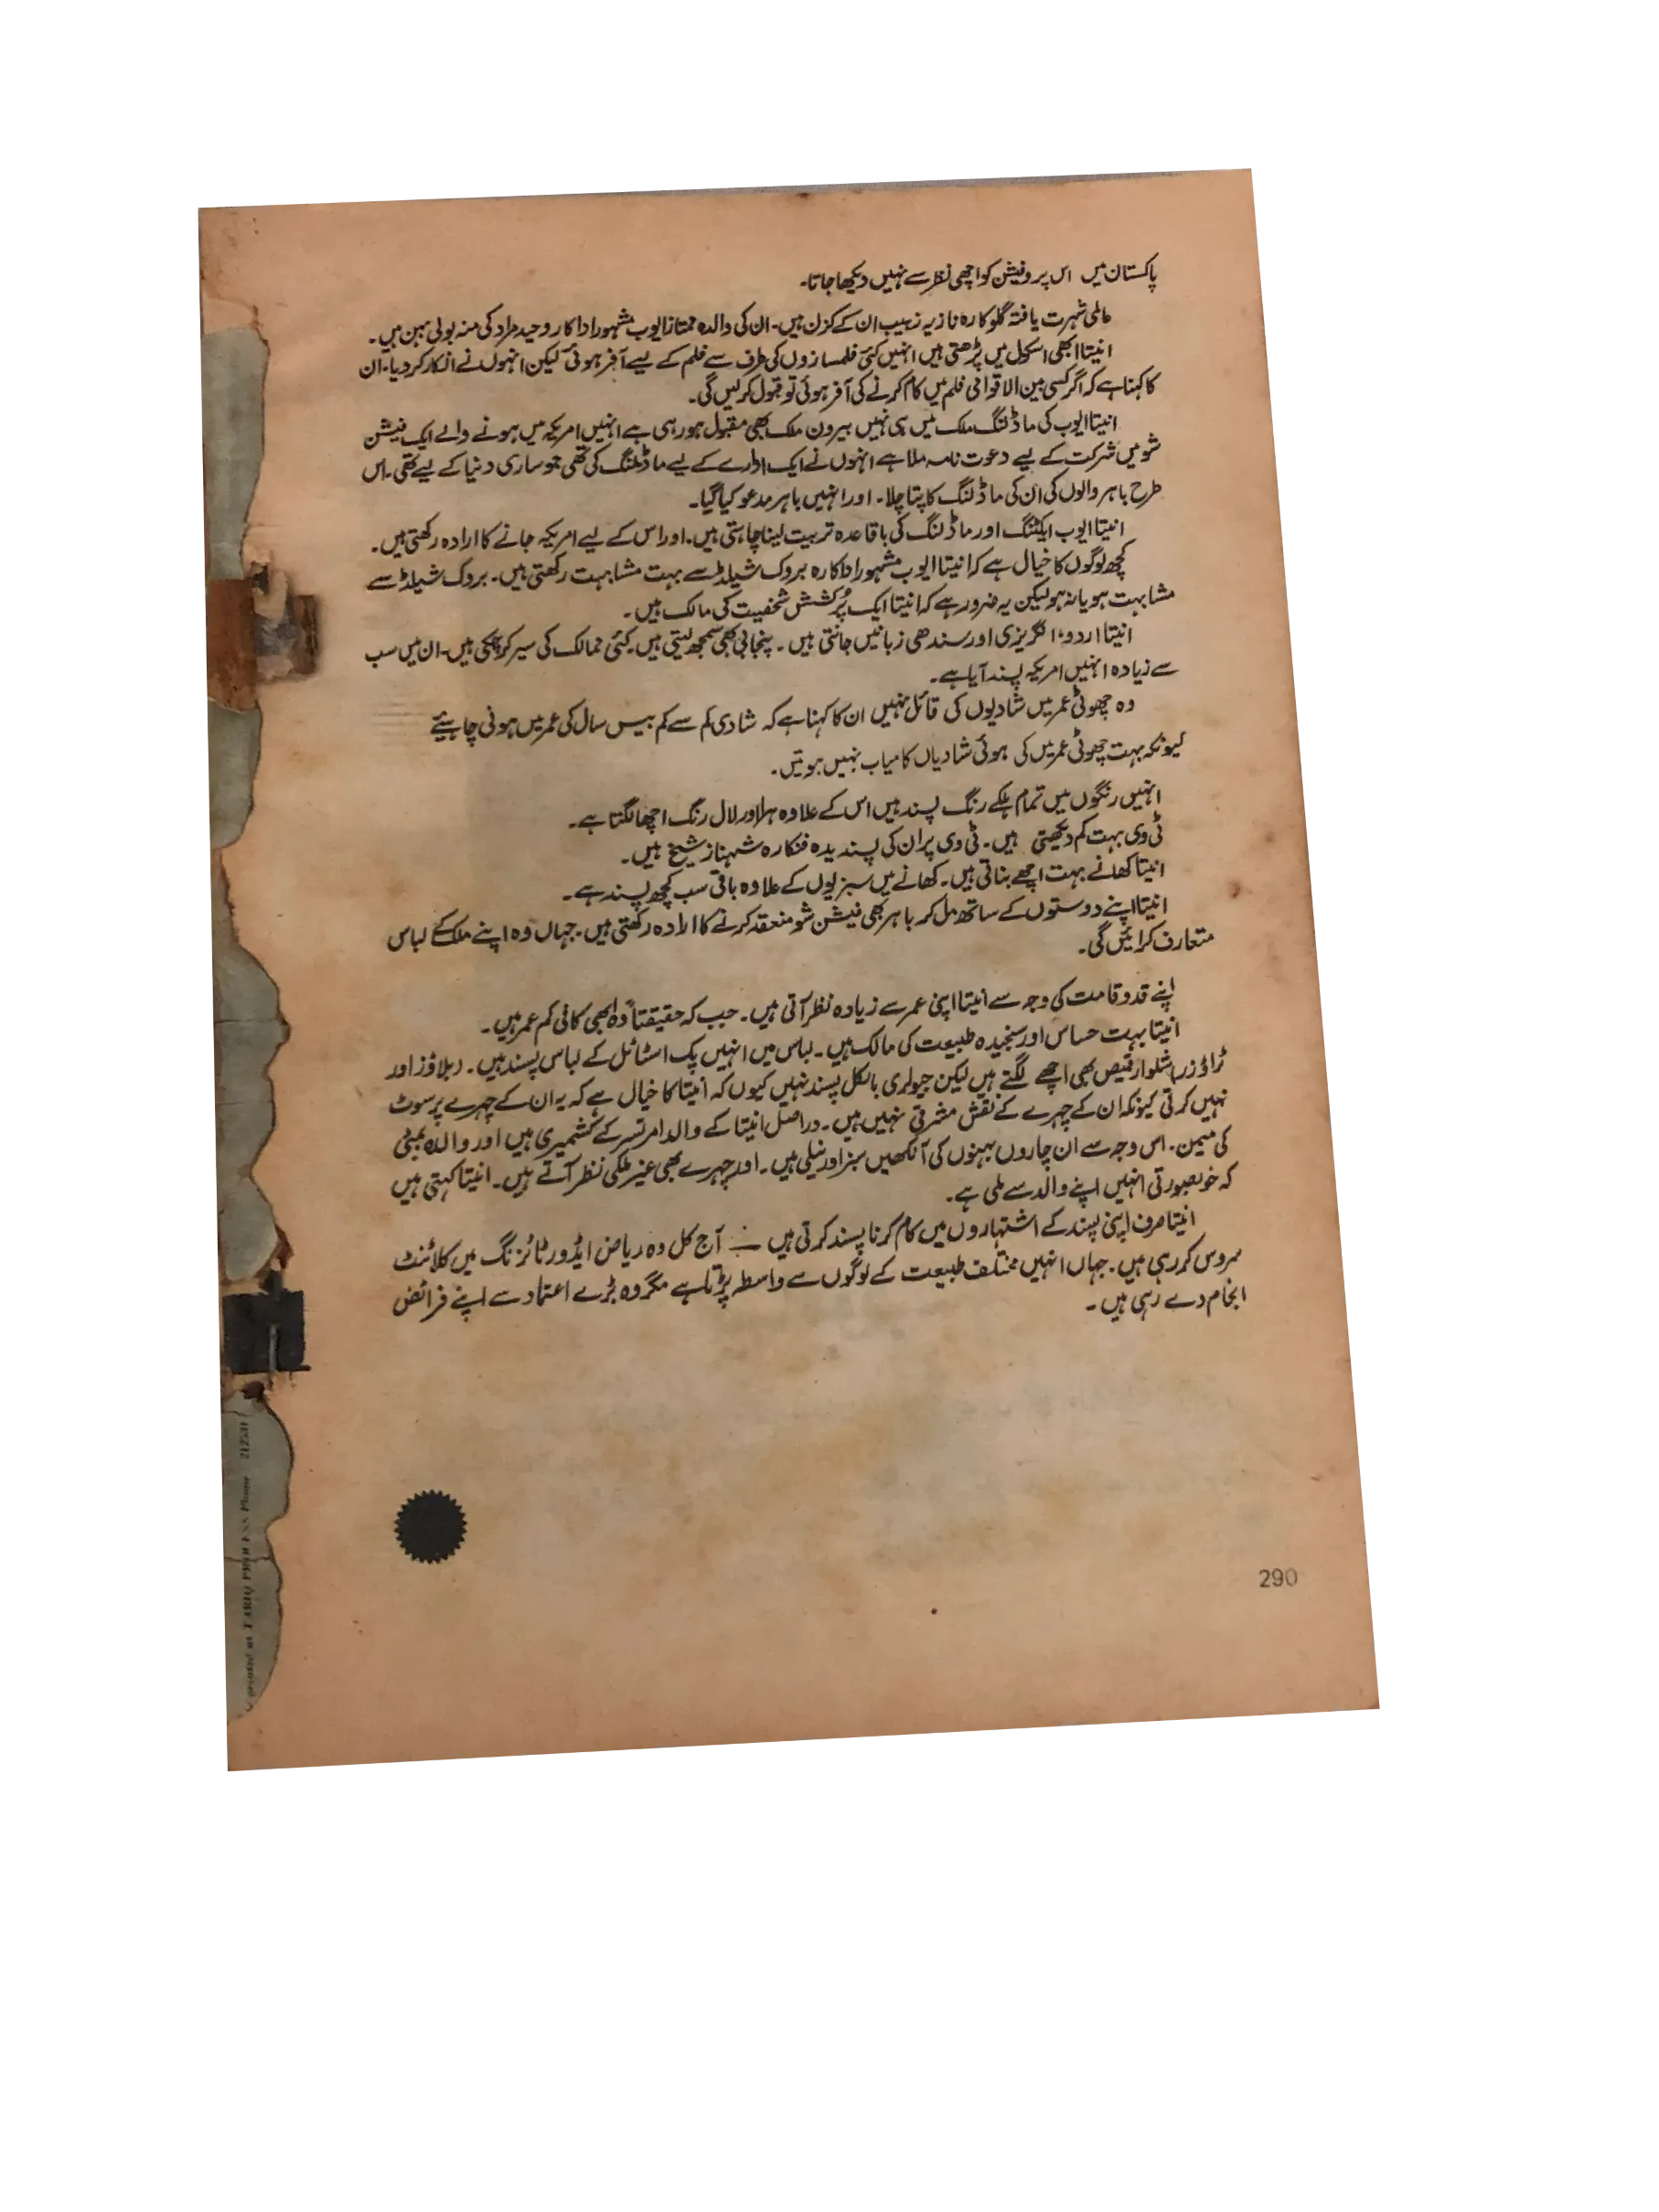 پاکستان میں اس پروفیشن کو اچھی نظر سے نہیں دیکھا جاتا۔
عالمی شہرت یافتہ گلوکارہ نازیہ زہیب ان کے کزن ہیں۔ ان کی والدہ ممتاز ایوب مشہور اداکار وحید مراد کی منہ بولی بہن ہیں۔
انیتا ابھی اسکول میں پڑھتی ہیں انہیں کئی فلمسازوں کی طرف سے فلم کے لیے آفر ہوئی لیکن انہوں نے انکار کر دیا۔ ان
کا کہنا ہے کہ اگر کسی بین الاقوامی فلم میں کام کرنے کی آفر ہوئی تو قبول کر لیں گی۔
انیتا ایوب کی ماڈلنگ ملک میں ہی نہیں بیرون ملک بھی مقبول ہو رہی ہے انہیں امریکہ میں ہونے والے ایک فیشن
شو میں شرکت کے لیے دعوت نامہ ملا ہے انہوں نے ایک ادارے کے لیے ماڈلنگ کی تھی جو ساری دنیا کے لیے تھی۔ اس
طرح باہر والوں کی ان کی ماڈلنگ کا پتا چلا۔ اور انہیں باہر مدعو کیا گیا۔
انیتا ایوب ایکٹنگ اور ماڈلنگ کی باقاعدہ تربیت لینا چاہتی ہیں۔ اور اس کے لیے امریکہ جانے کا ارادہ رکھتی ہیں۔
کچھ لوگوں کا خیال ہے کہ انیتا ایوب مشہور اداکارہ بروک شیلڈ سے بہت مشابہت رکھتی ہیں۔ بروک شیلڈ سے
مشابہت ہو یا نہ ہو لیکن یہ ضرور ہے کہ انیتا ایک پُرکشش شخصیت کی مالک ہیں۔
انیتا اردو، انگریزی اور سندھی زبانیں جانتی ہیں۔ پنجابی بھی سمجھ لیتی ہیں۔ کئی ممالک کی سیر کر چکی ہیں۔ ان میں سب
سے زیادہ انہیں امریکہ پسند آیا ہے۔
وہ چھوٹی عمر میں شادیوں کی قائل نہیں ان کا کہنا ہے کہ شادی کم سے کم بیس سال کی عمر میں ہونی چاہیئے
کیونکہ بہت چھوٹی عمر میں کی ہوئی شادیاں کامیاب نہیں ہوتیں۔
انہیں رنگوں میں تمام ہلکے رنگ پسند ہیں اس کے علاوہ ہرا اور لال رنگ اچھا لگتا ہے۔
ٹی وی بہت کم دیکھتی ہیں۔ ٹی وی پر ان کی پسندیدہ فنکارہ شہناز شیخ ہیں۔
انیتا کھانے بہت اچھے بناتی ہیں۔ کھانے میں سبزیوں کے علاوہ باقی سب کچھ پسند ہے۔
انیتا اپنے دوستوں کے ساتھ مل کر باہر بھی فیشن شو منعقد کرنے کا ارادہ رکھتی ہیں۔ جہاں وہ اپنے ملک کے لباس
متعارف کرائیں گی۔
اپنے قد و قامت کی وجہ سے انیتا اپنی عمر سے زیادہ نظر آتی ہیں۔ جب کہ حقیقتاً وہ ابھی کافی کم عمر ہیں۔
انیتا بہت حساس اور سنجیدہ طبیعت کی مالک ہیں۔ لباس میں انہیں پک اسٹائل کے لباس پسند ہیں۔ (بلاؤز اور
ٹراؤزر) شلوار قمیض بھی اچھے لگتے ہیں لیکن جیولری بالکل پسند نہیں کیوں کہ انیتا کا خیال ہے کہ یہ ان کے چہرے پر سوٹ
نہیں کرتی کیونکہ ان کے چہرے کے نقش مشرقی نہیں ہیں۔ دراصل انیتا کے والد امرتسر کے کشمیری ہیں اور والدہ بمبئی
کی میمن۔ اس وجہ سے ان چاروں بہنوں کی آنکھیں سبز اور نیلی ہیں۔ اور چہرے بھی غیر ملکی نظر آتے ہیں۔ انیتا کہتی ہیں
کہ خوبصورتی انہیں اپنے والد سے ملی ہے۔
انیتا صرف اپنی پسند کے اشتہاروں میں کام کرنا پسند کرتی ہیں ۔ آج کل وہ ریاض ایڈورٹائزنگ میں کلائنٹ
سروس کر رہی ہیں۔ جہاں انہیں مختلف طبیعت کے لوگوں سے واسطہ پڑتا ہے مگر وہ بڑے اعتماد سے اپنے فرائض
انجام دے رہی ہیں۔
290
printed at TARIQ PROCESS Phone 212531